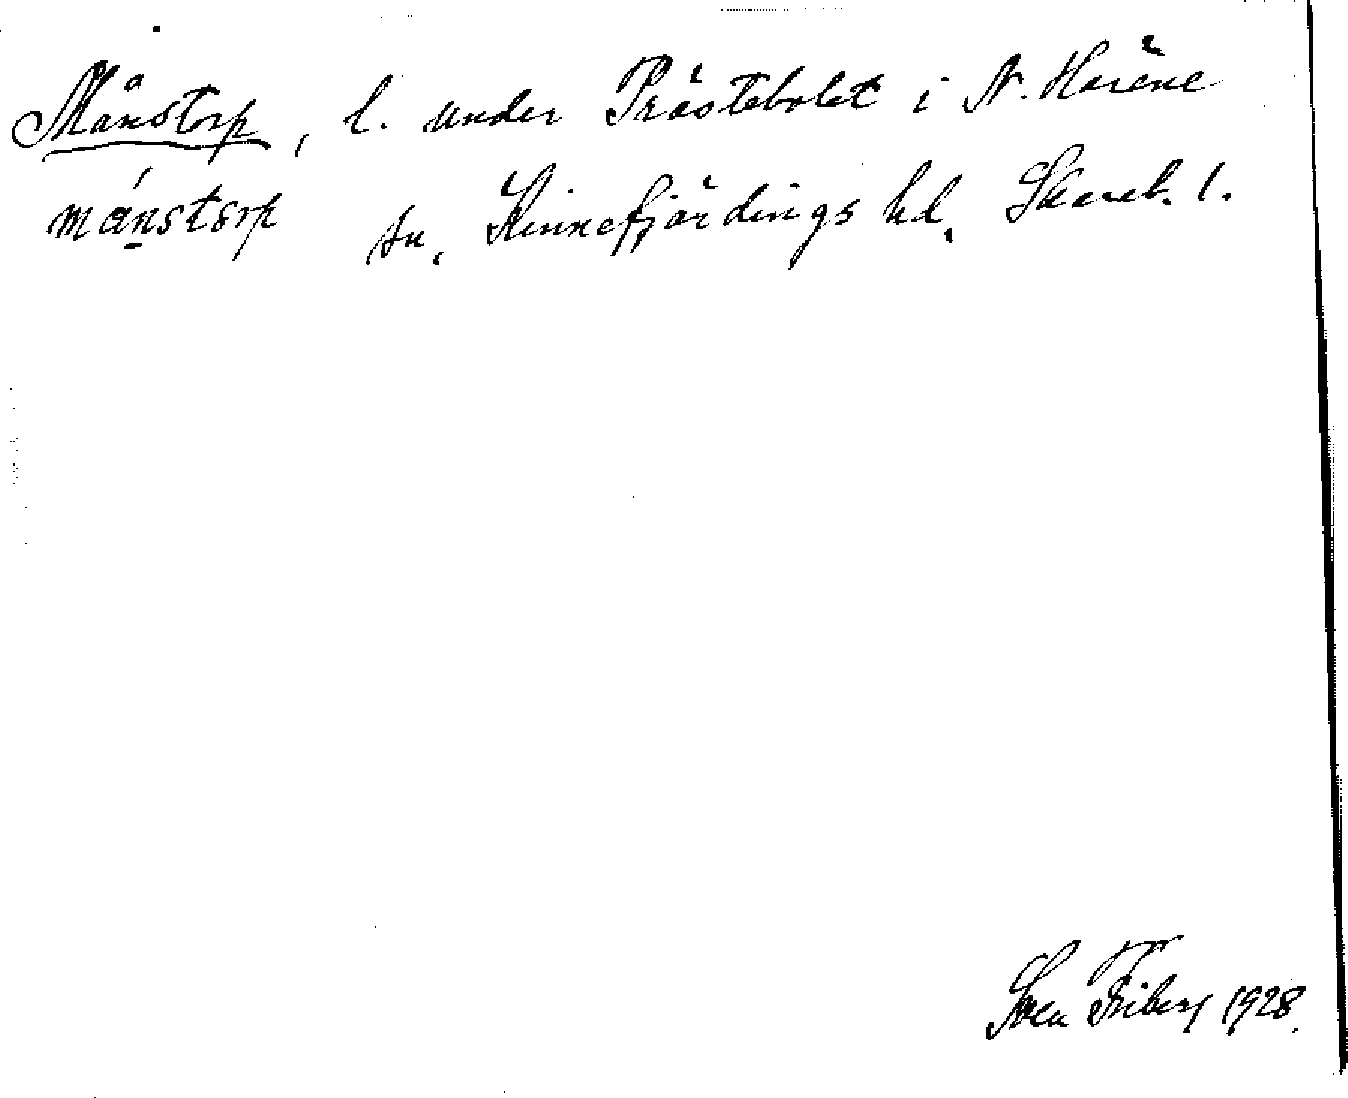 Månstorp, l. under Prästebolet i N. Härene
månstorp sn, Kinnefjärdings hd, Skarab. l.
Sven Friberg 1928.